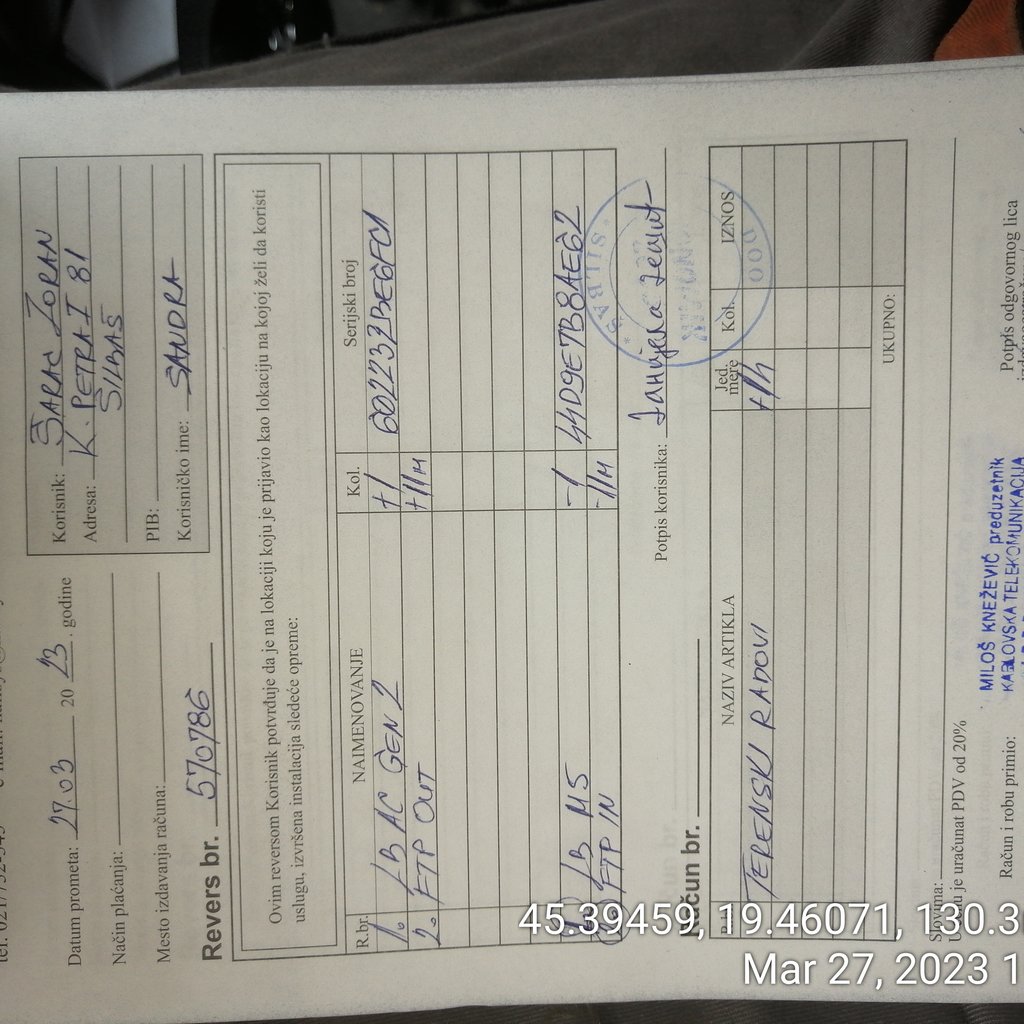 Datum prometa: 27.03 2023. godine
Način plaćanja:
Mesto izdavanja računa:
Korisnik: ŠARAC ZORAN
Adresa: K. PETRA I 81
SILBAŠ
PIB:
Korisničko ime: SANDRA
Revers br. 570786
Ovim reversom Korisnik potvrđuje da je na lokaciji koju je prijavio kao lokaciju na kojoj želi da koristi
uslugu, izvršena instalacija sledeće opreme:
R.br. NAIMENOVANJE Kol. Serijski broj
1. LB AC GEN 2 +1 602232BE6FC1
2. FTP OUT +11M
LB M5 -1 44D9E7B8AE62
FTP IN -11M
Potpis korisnika:
SILBAŠ
DOO
Račun br.
NAZIV ARTIKLA Jed. mere Kol. IZNOS
TERENSKI RADOVI +1h
UKUPNO:
Slovima:
U cenu je uračunat PDV od 20%
Račun i robu primio:
Potpis odgovornog lica
MILOŠ KNEŽEVIĆ preduzetnik
KABLOVSKA TELEKOMUNIKACIJA
45.39459, 19.46071, 130.3
Mar 27, 2023 1